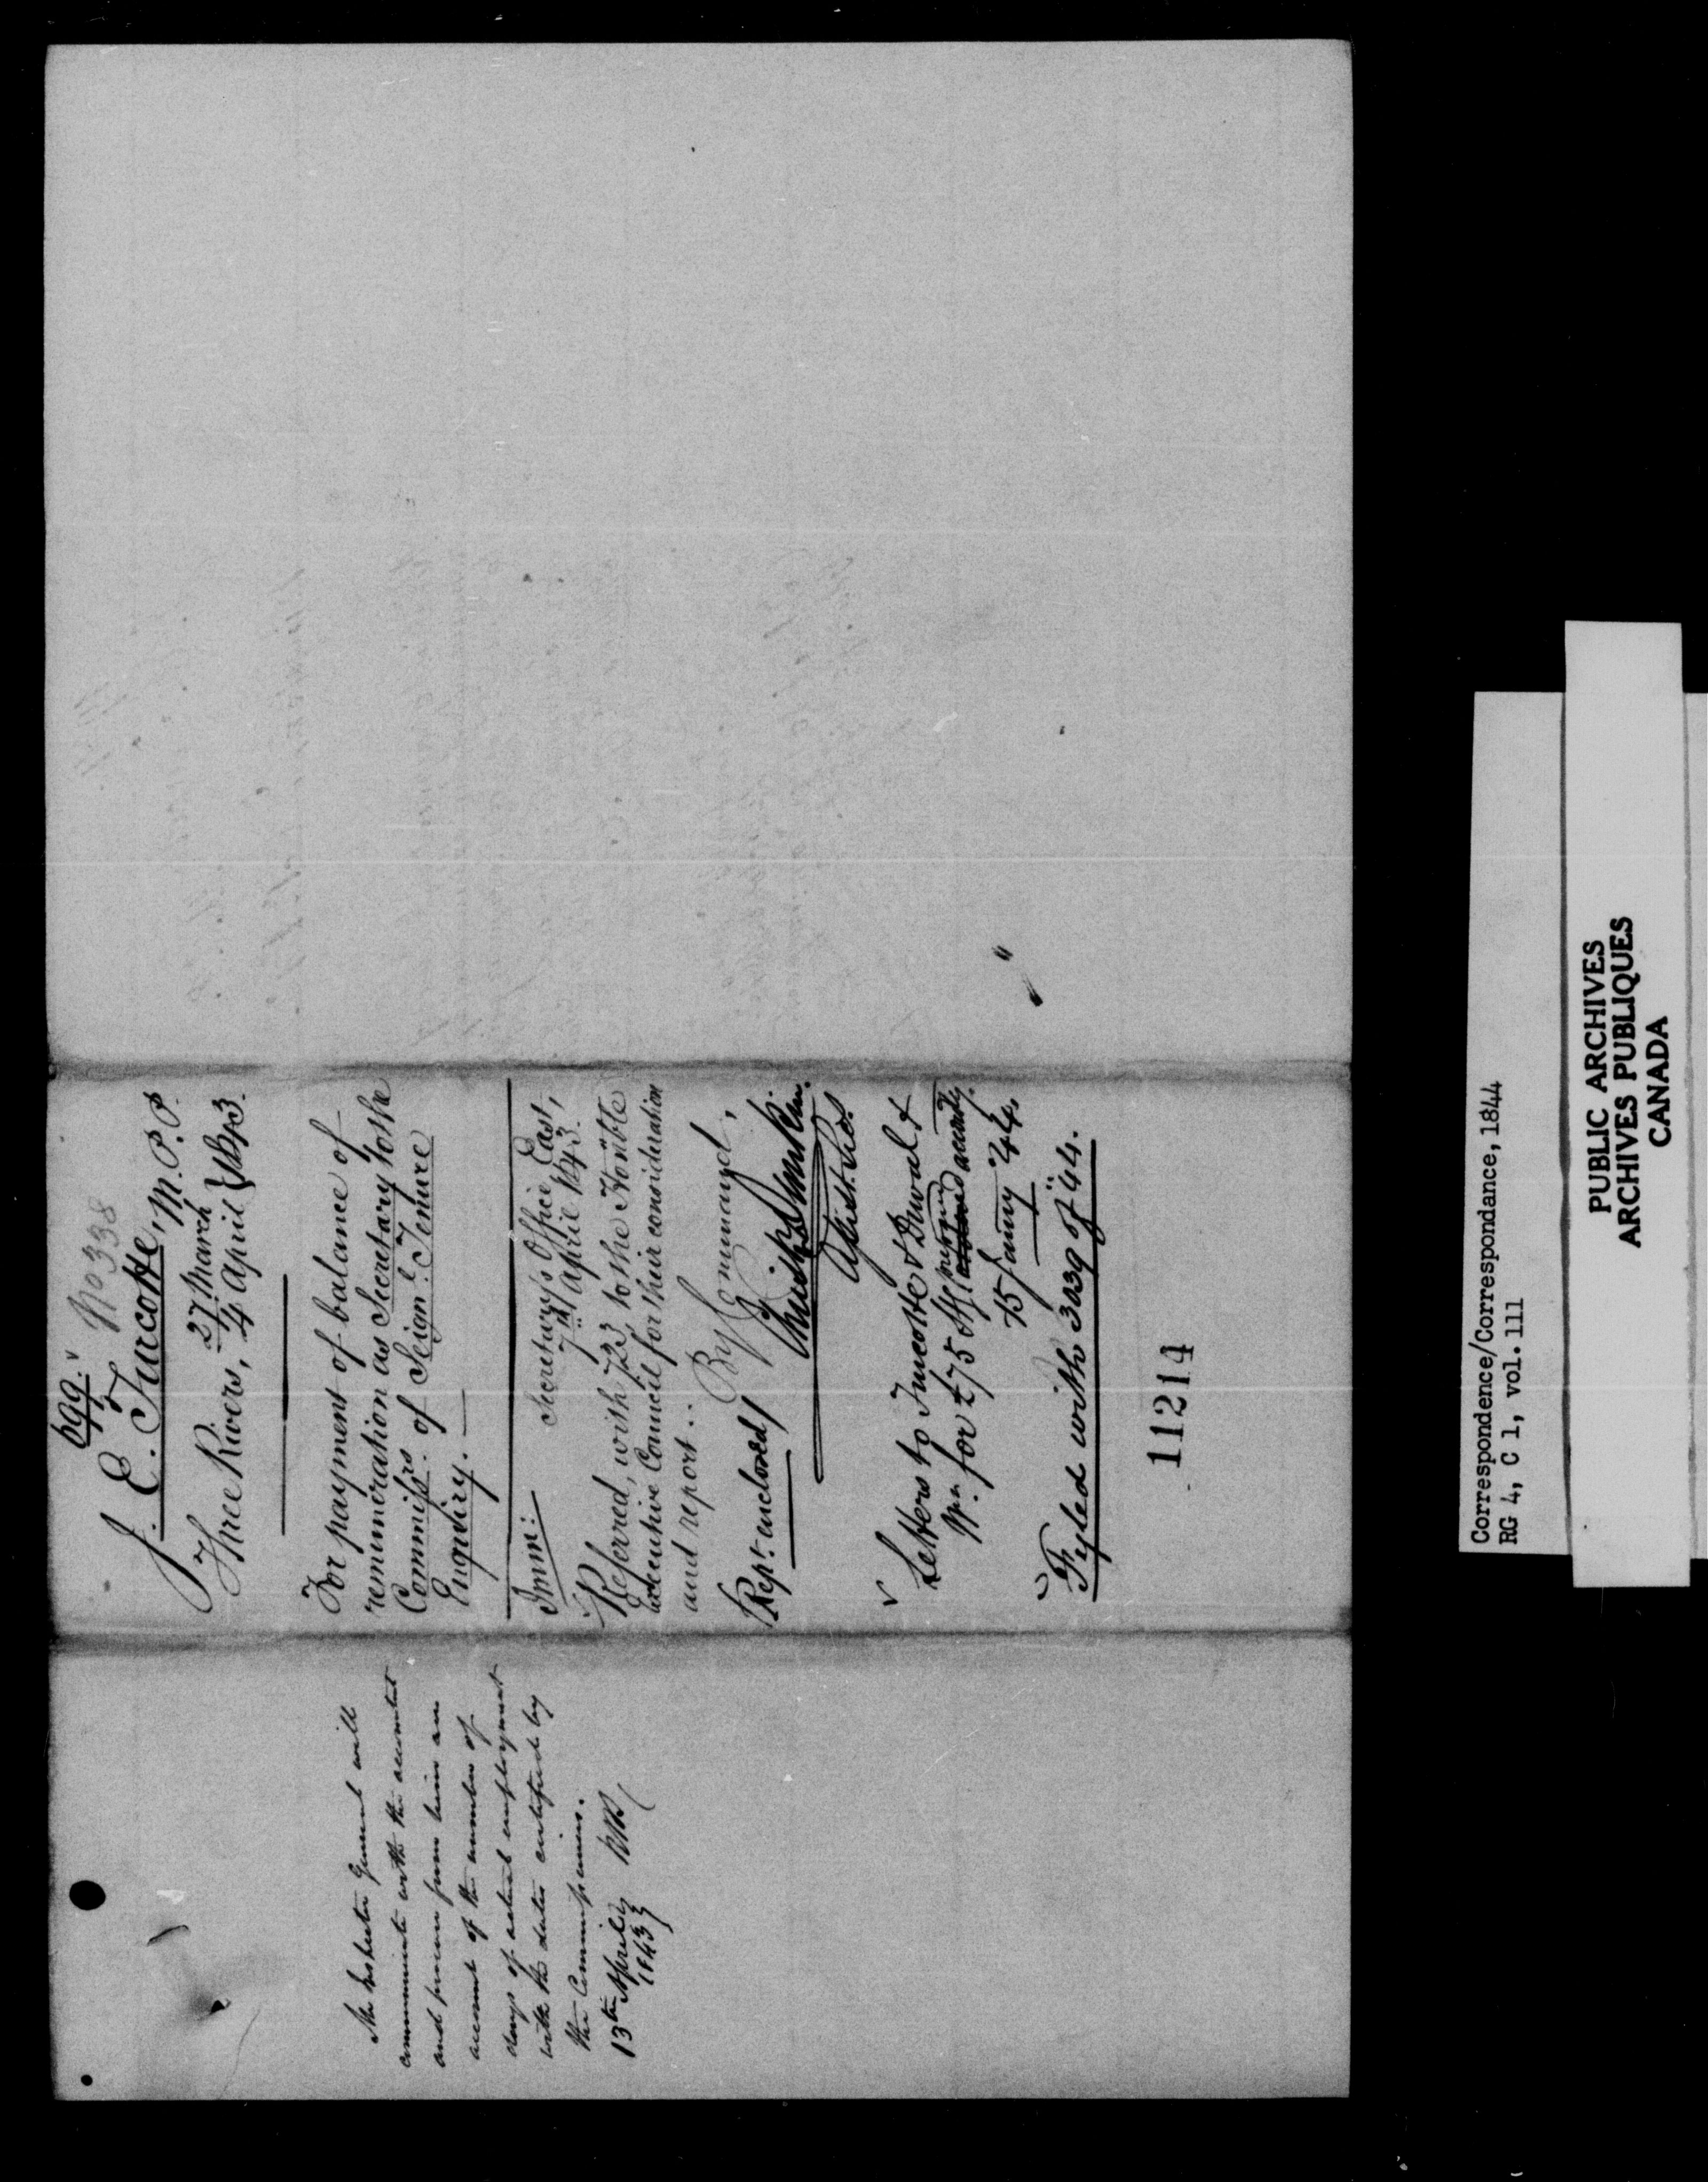 699.
No 338
J. E. Turcotte, M.P.P.
Three Rivers, 27 March
4 April } 1843.
For payment of balance of
remuneration as Secretary to the
Commissrs. of Seign.l Tenure
Enquiry.
Imm:
Secretary's Office East,
7th April 1843.
Referred, with 723, to the Honble
Executive Council for their consideration
and report..
By Command,
[Rept. enclosed]
Asst. Sec.
Letters to Turcotte & Duval &
Wn. for £75 Stg accordy.
15 Jany 44.
Fyled with 3039 of "44.
11214
The Inspector General will
communicate with the accountant
and procure from him an
account of the number of
days of actual employment
with the dates certified by
the Commissioners.
13th April
1843
Correspondence/Correspondance, 1844
RG 4, C 1, vol. 111
PUBLIC ARCHIVES
ARCHIVES PUBLIQUES
CANADA